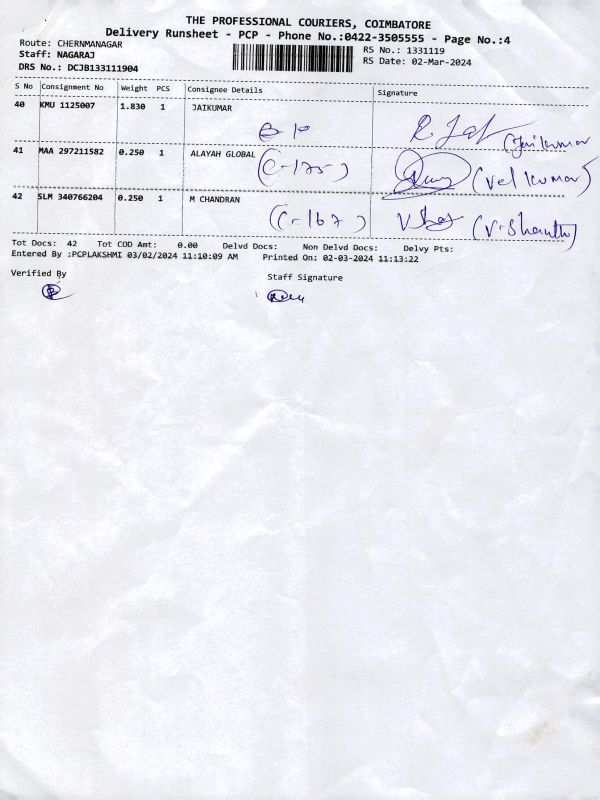 THE PROFESSIONAL COURIERS, COIMBATORE
Delivery Runsheet - PCP - Phone No.:0422-3505555 - Page No.:4
Route: CHERNMANAGAR
Staff: NAGARAJ
DRS No.: DCJB133111904
RS No.: 1331119
RS Date: 02-Mar-2024
S No Consignment No Weight PCS Consignee Details Signature
40 KMU 1125007 1.830 1 JAIKUMAR
(Jaikumar
41 MAA 297211582 0.250 1 ALAYAH GLOBAL
(C-175) (Velkumar)
42 SLM 340766204 0.250 1 M CHANDRAN
(C-167) (V.Shanth)
Tot Docs: 42 Tot COD Amt: 0.00 Delvd Docs: Non Delvd Docs: Delvy Pts:
Entered By :PCPLAKSHMI 03/02/2024 11:10:09 AM Printed On: 02-03-2024 11:13:22
Verified By
Staff Signature